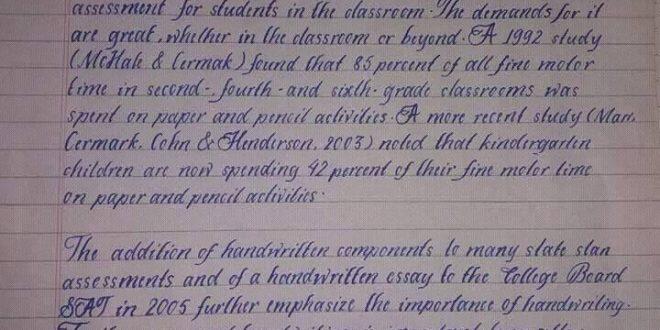 assessment for students in the classroom. The demands for it
are great, whether in the classroom or beyond. A 1992 study
(McHale & Cermak) found that 85 percent of all fine motor
time in second-, fourth- and sixth- grade classrooms was
spent on paper and pencil activities. A more recent study (Marr,
Cermark, Cohn & Henderson, 2003) noted that kindergarten
children are now spending 42 percent of their fine motor time
on paper and pencil activities.
The addition of handwritten components to many state stan
assessments and of a handwritten essay to the College Board
SAT in 2005 further emphasize the importance of handwriting.